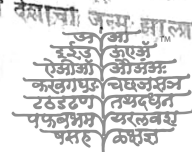 देशाचा जन्म झाला
अ आ
इईउ ऊएऍ
ऐओऑ औअंअः
कखगघङ चछजझञ
टठडढण तथदधन
पफबभम यरलवश
षसह ळक्षज्ञ